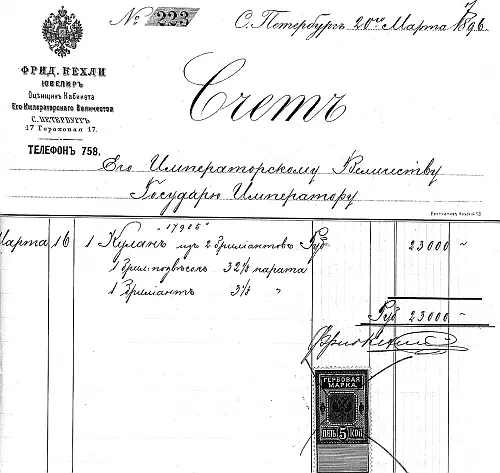 № 223
С. Петербургъ 20го Марта 1896
ФРИД. КЕХЛИ
ЮВЕЛИРЪ
Оцѣнщикъ Кабинета
Его Императорскаго Величества
С. ПЕТЕРБУРГЪ
17 Гороховая 17.
ТЕЛЕФОНЪ 758.
Счетъ
Его Императорскому Величеству
Государю Императору
Марта 16 1 Кулонъ изъ 2 брилиантовъ Руб 23000 "
1 брил. подвѣсокъ 32⅞ карата
1 Брилиантъ "
Руб 23000 "
ГЕРБОВАЯ
МАРКА.
ПЯТЬ 5 КОП.